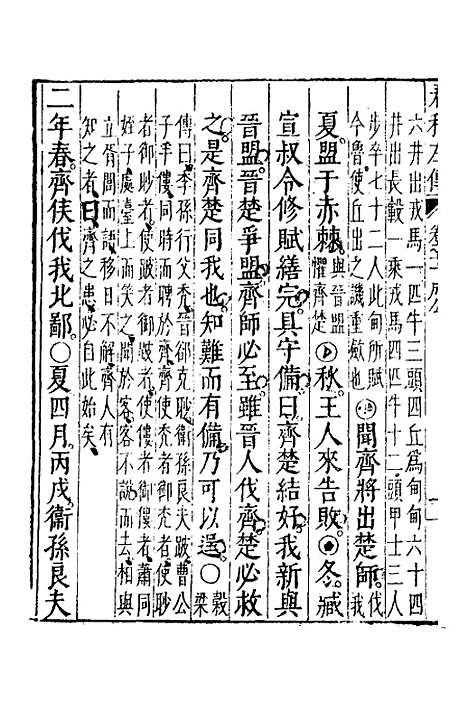 六井出戎馬一匹牛三頭四丘爲甸甸六十四
井出長轂一乘戎馬四匹牛十二頭甲士三人
步卒七十二人此甸所賦
今魯使丘出之譏重斂也
聞齊將出楚師
伐
我
夏。盟于赤棘
與晉盟
懼齊楚
秋。王人來告敗。冬。臧
宣叔令修賦繕完。具守備。曰。齊楚結好。我新與
晉盟。晉楚爭盟。齊師必至。雖晉人伐齊。楚必救
之。是齊楚同我也。知難而有備。乃可以逞。〇
穀
梁
傳曰季孫行父禿晉郤克眇衛孫良夫跛曹公
子手僂同時而聘於齊齊使禿者御禿者使眇
者御眇者使跛者御跛者使僂者御僂者蕭同
姪子處臺上而笑之聞於客客不說而去相與
立胥閭而語移日不解齊人有
知之者曰齊之患必自此始矣
二年春。齊侯伐我北鄙。〇夏四月。丙戌。衛孫良夫